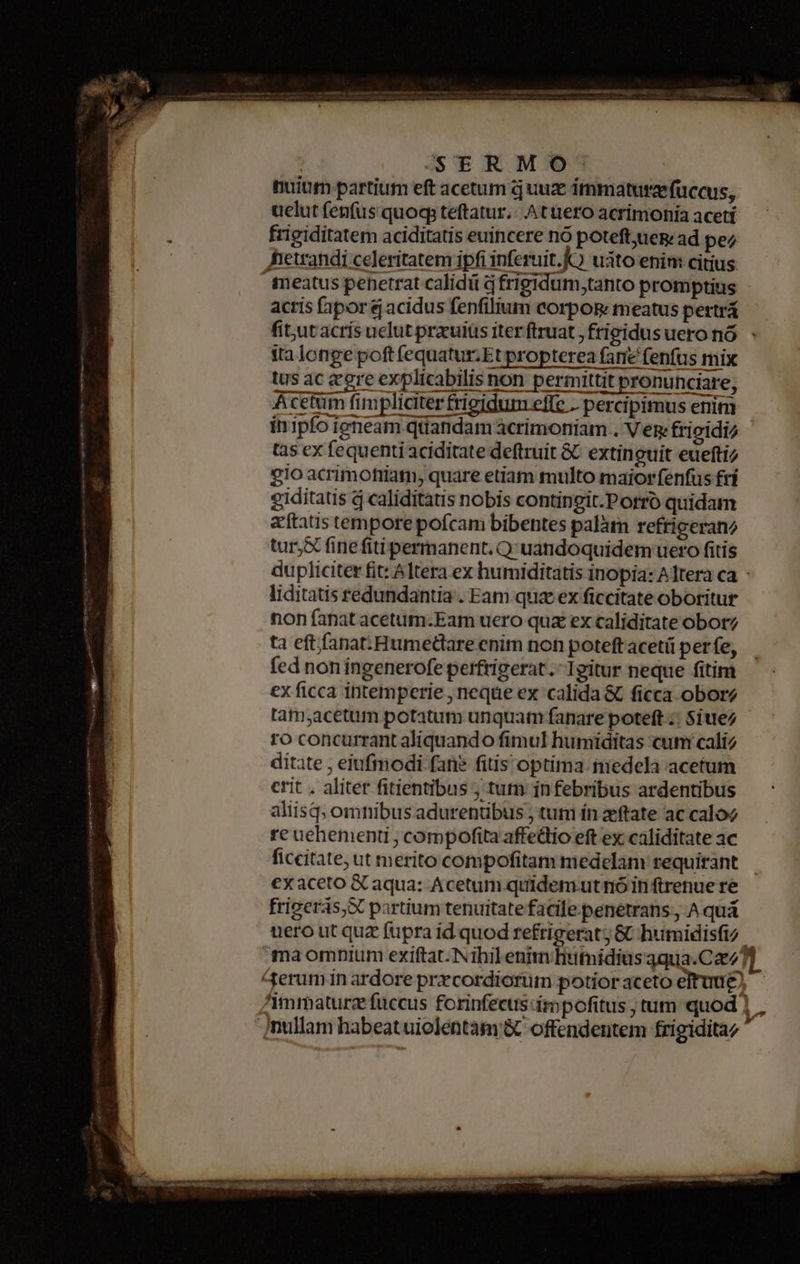 SERMO
nuium partium est acetum q̃ uuæ immaturæ succus,
uelut sensus quoqꝫ testatur. At uero acrimonia aceti
frigiditatem aciditatis euincere nõ potest, ueꝝ ad pe⸗
netrandi celeritatem ipsi inseruit. uãto enim citius
meatus penetrat calidũ q̃ frigidum, tanto promptius
acris sapor q̃ acidus sensilium corpoꝝ meatus pertrã
sit, ut acris uelut præuius iter struat, frigidus uero nõ
ita longe post sequatur. Et propterea sane sensus mix
tus ac ægre explicabilis non permittit pronunciare,
Acetum simpliciter frigidum esse. percipimus enim
in ipso igneam quandam acrimoniam. Veꝝ frigidi⸗
tas ex sequenti aciditate destruit & extinguit euesti⸗
gio acrimoniam, quare etiam multo maior sensus fri
giditatis q̃ caliditatis nobis contingit. Porro quidam
æstatis tempore poscam bibentes palàm refrigeran⸗
tur, & sine siti permanent. Quandoquidem uero sitis
dupliciter fit: Altera ex humiditatis inopia: Altera ca
liditatis redundantia. Eam quæ ex siccitate oboritur
non sanat acetum. Eam uero quæ ex caliditate obor⸗
ta est, sanat. Humectare enim non potest acetũ per se,
sed non ingenerose perfrigerat. Igitur neque sitim
ex sicca intemperie, neque ex calida & sicca obor⸗
tam, acetum potatum unquam sanare potest. Siue⸗
ro concurrant aliquando simul humiditas cum cali⸗
ditate, eiusmodi sanè sitis optima medela acetum
erit. aliter sitientibus, tum in febribus ardentibus
aliisq; omnibus adurentibus, tum in æstate ac calo⸗
re uehementi, composita affectio est ex caliditate ac
siccitate, ut merito compositam medelam requirant
ex aceto & aqua: Acetum quidem ut nõ instrenue re
frigerãs, & partium tenuitate facile penetrans, Aquã
uero ut quæ supra id quod refrigerat, & humidissi⸗
ma omnium existat. Nihil enim humidius aqua. Cæ⸗
terum in ardore præcordiorum potior aceto est uuę
immaturæ succus forinsecus impositus, tum quod
nullam habeat uiolentam & offendentem frigidita⸗